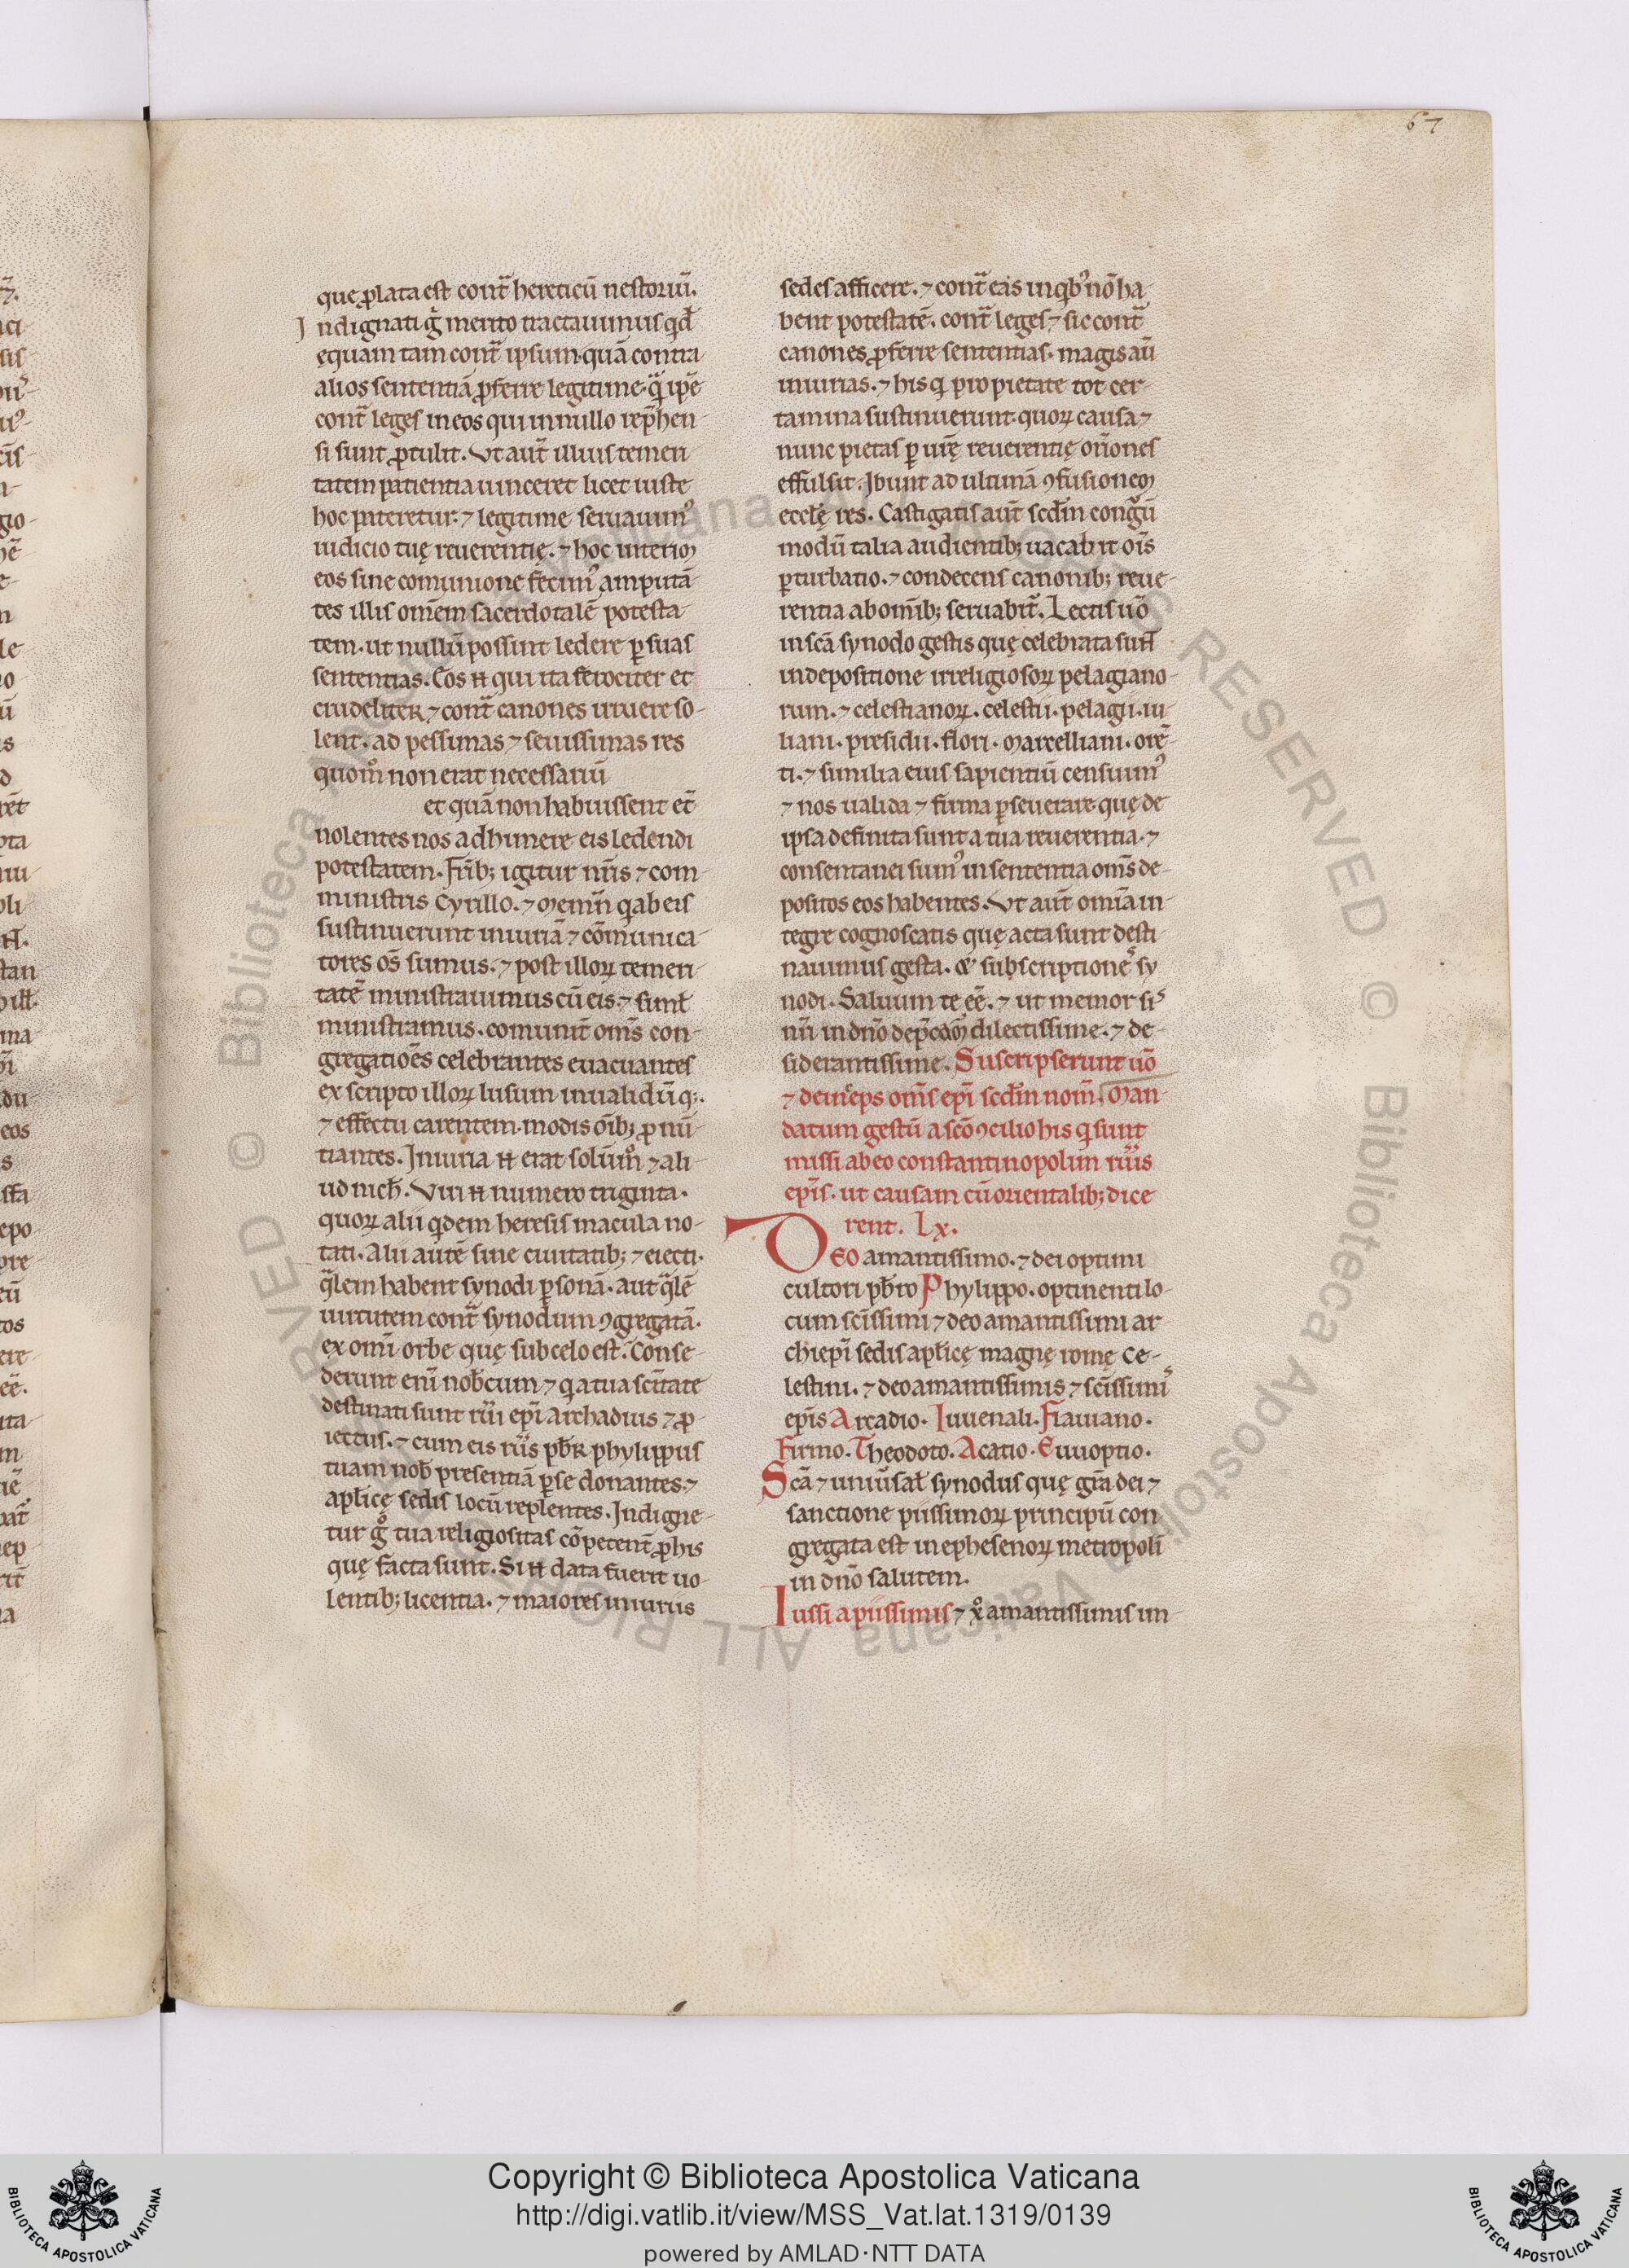 67
que ꝓlata est cont̃ hereticũ nestoriũ.
Indignati g̃ merito tractauimus qđ
ęquam tam cont̃ ipsum quã contra
alios sententiã ꝓferre legitime q̃ ip̃e
cont̃ leges in eos qui in nullo rep̃hen-
si sunt ꝓtulit. Vt aut̃ illius temeri
tatem patientia uinceret licet iuste
hoc pateretur. ⁊ legitime seruauim᾽
iudicio tuę reuerentię. ⁊ hoc interim
eos sine comunione fecim᾽ amputã
tes illis om̃em sacerdotalẽ potesta-
tem. ut nullũ possint ledere ꝑ suas
sententias. Eos n̄ qui ita ferociter et
crudeliter ⁊ cont̃ canones irruere so-
lent. ad pessimas ⁊ seuissimas res
quom̊ non erat necessariũ
et quã non habuissent et̃
nolentes nos adhimere eis ledendi
potestatem. Fr̃ib; igitur nr̃is ⁊ com-
ministris Cyrillo. ⁊ Memñ q ab eis
sustinuerunt iniuriã ⁊ cõmunica-
tores os̃ sumus. ⁊ post illoꝝ temeri-
tatẽ ministrauimus cũ eis. ⁊ simł
ministramus. comunit̃ om̃s con-
gregatiões celebrantes euacuantes
ex scripto illoꝝ lusum inualidũ q;.
⁊ effectu carentem. modis oĩb; ꝓnũ-
tiantes. Iniuria n̄ erat solum̊ ⁊ ali-
ud nich̃. Viri n̄ numero triginta.
quoꝝ alii qdem heresis macula no-
tati. Alii autẽ sine ciuitatib; ⁊ eiecti.
q̃lem habent synodi ꝑsonã. aut q̃lẽ
uirtutem cont̃ synodum ꝯgregatã.
ex omĩ orbe quę sub celo est. Conse-
derunt enĩ nob̃cum ⁊ q a tua scĩtate
destinati sunt rũi ep̃i Archadius ⁊ ꝓ-
iectus. ⁊ cum eis rũs pb̃r phylippus
tuam nob̃ presentiã ꝑ se donantes. ⁊
apl̃icę sedis locũ replentes. Indigne-
tur g̊ tua religiositas cõpetent̃ ꝓ his
quę facta sunt. Si n̄ data fuerit uo-
lentib; licentia. ⁊ maiores iniuriis
sedes afficere. ⁊ cont̃ eas in qb᾽ nõ ha-
bent potestatẽ. cont̃ leges ⁊ sic cont̃
canones ꝓferre sententias. magis aũ
iniurias. ⁊ his q pro pietate tot cer-
tamina sustinuerunt. quoꝝ causa ⁊
nunc pietas ꝑ ur̃ę reuerentię or̃ones
effulsit. Ibunt ad ultimã ꝯfusionem
eccl̃ę res. Castigatis aut̃ scd̃m congruũ
modũ talia audientib; uacabit oĩs
ꝑturbatio. ⁊ condecens canonib; reue-
rentia ab om̃ib; seruabit᾽. Lectis uõ
in scã synodo gestis quę celebrata sunt̃
in depositione irreligiosoꝝ pelagiano-
rum. ⁊ celestianoꝝ. celestii. pelagii. iu-
liani. presidii. flori. Marcelliani. orẽ-
ti. ⁊ similia eius sapientiũ censuim᾽
⁊ nos ualida ⁊ firma ꝑseuerare quę de
ipsa definita sunt a tua reuerentia. ⁊
consentanei sum᾽ in sententia om̃s de-
positos eos habentes. Vt aut̃ omĩa in-
tegre cognoscatis quę acta sunt desti
nauimus gesta. & subscriptionẽ sy
nodi. Saluum te eẽ. ⁊ ut memor sis
nr̃i in dño dep̃cam᾽ dilectissime. ⁊ de-
siderantissime. Suscripserunt uõ
⁊ deinceps om̃s ep̃i scd̃m nom̃. Man-
datum gestũ a scõ ꝯcilio his q sunt
missi ab eo constantinopolim rũis
ep̃is. ut causam cũ orientalib; dice
rent. Lx.
Deo amantissimo. ⁊ dei optimi
cultori pb̃ro Phylippo. optinenti lo-
cum scĩssimi ⁊ deo amantissimi ar
chiep̃i sedis apl̃icę magnę romę Ce-
lestini. ⁊ deo amantissimis ⁊ scĩssimis
ep̃is Arcadio. Iuuenali. Flauiano.
Firmo. Theodoto. Acatio. Euuoptio.
Scã ⁊ uniũsał synodus quę gr̃a dei ⁊
sanctione piissimoꝝ principũ con
gregata est in ephesenoꝝ metropoli
in dño salutem.
Iussi a piissimis ⁊ x̊ amantissimis im-
Copyright © Biblioteca Apostolica Vaticana
http://digi.vatlib.it/view/MSS_Vat.lat.1319/0139
powered by AMLAD·NTT DATA